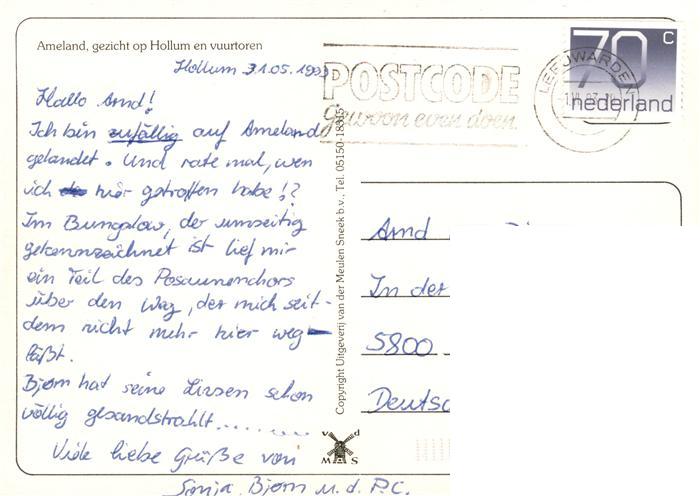 Ameland, gezicht op Hollum en vuurtoren
Hollum 31.05.1993
Hallo Arnd!
Ich bin zufällig auf Ameland
gelandet. Und rate mal, wen
ich hier getroffen habe!?
Im Bungalow, der umseitig
gekennzeichnet ist lief mir
ein Teil des Posaunenchors
über den Weg, der mich seit-
dem nicht mehr hier weg
läßt.
Bjørn hat seine Linsen schon
völlig gesandstrahlt..........
Viele liebe Grüße von
Sonja, Bjørn u. d. P.C.
POSTCODE
Gewoon even doen.
LEEUWARDEN
70 c
nederland
Copyright Uitgeverij van der Meulen Sneek b.v., Tel. 05150-18315*
Arnd
In der
5800
Deutsc
v d
M S